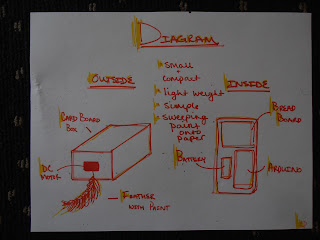 DIAGRAM
OUTSIDE
CARD BOARD
BOX
DC
MOTOR
FEATHER
WITH PAINT
small
+
compact
light weight
simple
sweeping
paint
onto
paper
INSIDE
BREAD
BOARD
BATTERY
ARDUINO